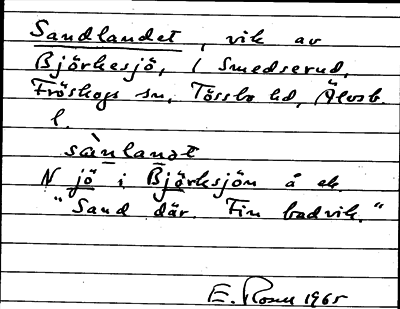 Sandlandet, vik av
Björkesjö, i Smedserud,
Fröskogs sn, Tössbo hd, Älvsb.
l.
sànlandt
N jö i Björksjön å ek.
"Sand där. Fin badvik."
E. Rosell 1965